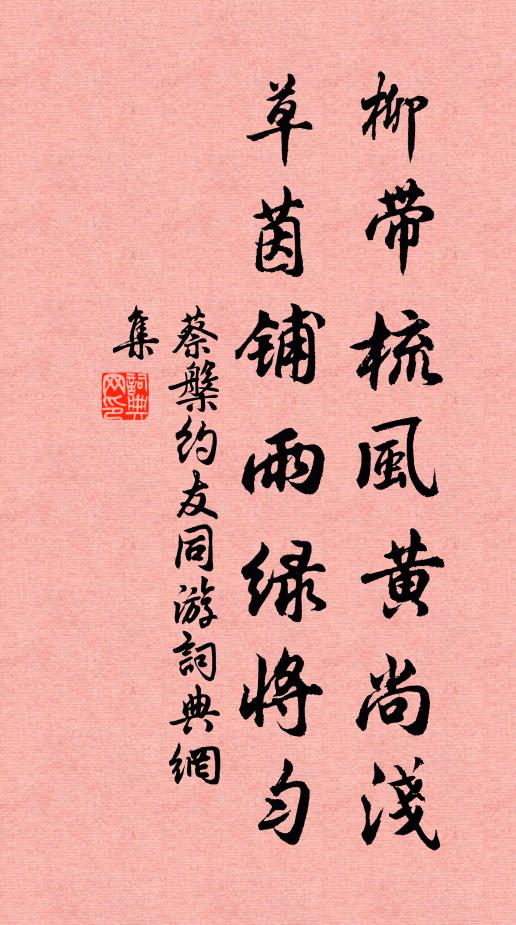 柳带梳風黄尚淺
草茵铺雨绿将匀
蔡槃约友同游詞典網
集
詞典網印